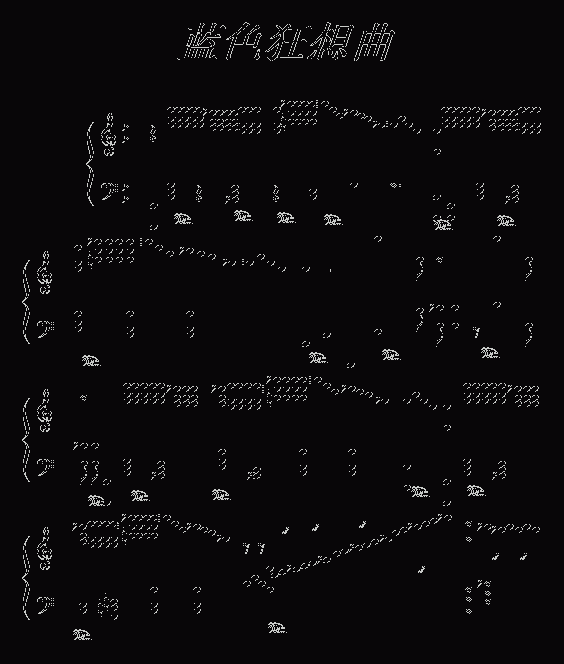 蓝色狂想曲